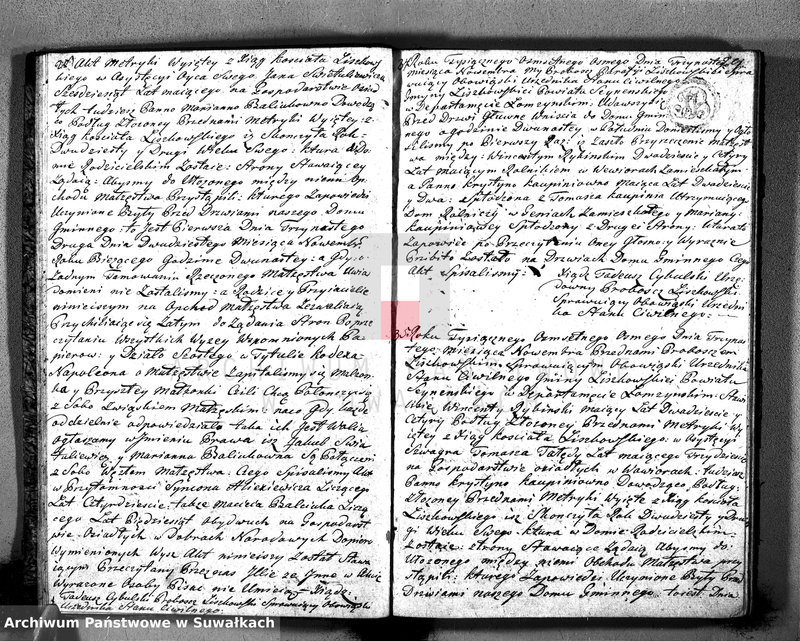 Akt Metryki Wyiętey z Xiąg kościoła Liszkow
skiego w Asystęcyi Oyca Swego Jana Swietulewicza
Szescdziesiąt Lat maiącego na Gospodarstwie Osia
tych tudziesz Panno Marianno Baliukowno Dowodzą
co Podług Złożoney Przednami Metryki Wyiętey z
Xiąg kościoła Liszkowskiego iż Skonczyła Rok
Dwudziesty y Drugi Wieku Swego: ktura w Do
mie Rodzicielskim zostaie: Strony Stawaiący
Ządaią: Abysmy do Ułożonego między niemi Ob
chodu Małzęstwa Przystąpili: kturego Zapowiedzi
Uczynione Były Przed Drzwiami naszego Domu
Gminnego: to Jest Pierwsza Dnia Trzynastego
Druga Dnia Dwudziestego Miesiąca Nowembr
Roku Bierącego Godzinie Dwunastey: a Gdy o
Zadnym Tamowaniu Rzeczonego Małzęstwa Uwia
domieni nie Zostalismy: a Rodzice y Przyiaciele
ninieyszym na Obchod Małzęstwa Zezwalaią
Przychilaiąc się Zatym do Ządania Stron Po prze
czytaniu Wszystkich Wyzey Wspomnionych Pa
pierow: y Działo Szostego w Tytulie kodexu
Napoleona o Małzęstwie Zapytalismy się Małzon
ka y Przyszłey Małzonki Czili Chcą Połonczyć się
z Sobo Związkiem Małzęskim: naco Gdy kazde
oddzielnie odpowiedziało taka ich Jest Wolia
ogłaszamy w Imieniu Prawa isz Jakub Swia
tulewicz y Marianna Baliukowna Są Połączeni
z Sobo Węzłem Małzęstwa: Czego Spisalismy Akt
w Przytomnosci Symona Alixiewicza Liczącego
Lat Cztyrdziescie: takze Macieia Balciula Liczą
cego Lat Piędziesiąt obydwuch na Gospodarst
wie Osiadłych w Dobrach Narodowych Dopiero
Wymienionych Wysz Akt ninieiszy Zostal Stawa
iącym Przeczytany Przeznas Ilie ze Inne w Akcie
Wyrazone Osoby Pisac nie Umieią = Xiądz
Tadeusz Cybulski Proboszcz Liszkowski Sprawuiący Obowiąski
Urzednika Stanu Cywilnego:
Roku Tysiącznego Osmsetnego Osmego Dnia Trzynastego
miesiąca Nowembra My Proboszcz Parafyi Liszkowskiei Spra
wuiący Obowiąski Urzednika Stanu Cywilnego
Gminy Liszkowskiei Powiatu Seynenskiego
w Departamęcie Lomzynskim: Udawszy się
Przed Drzwi Głuwne Wniscia do Domu Gmin
nego o godzinie Dwunastey w Południe Doniesliśmy y Ogło
silismy po Pierwszy Raz: iz Zaszło Przyrzeczenie Małzęst
wa między: Wincentym Rybinskim Dwadziescie y Cztyry
Lat maiącym Rolnikiem w Wewiorach Zamieszkałym
a Panno krystyno kaupiniowno maiąca Lat Dwadziescie
y Dwa: Spłodzona z Tomasza kaupinia Utrzymuiącego
Dom Rolniczy w Jeniach Zamieszkałego y Maryany
kaupiniowey Spłodzony z Drugei Strony: Wturato
Zapowiedz po Przeczytaniu Oney Głosno: y Wyraznie
Przibito Zostala na Drzwiach Domu Gminnego Czego
Akt Spisalismy:
Xiądz Tadeusz Cybulski Urzę
downy Proboszcz Liszkowski
Sprawuiący Obowiąski Urzedni
ka Stanu Cywilnego:
35. Roku Tysiącznego Osmsetnego Osmego Dnia Trzynas
tego miesiąca Nowembra Przednami Proboszczem
Liszkowskim: Sprawuiącym Obowiąski Urzednika
Stanu Cywilnego Gminy Liszkowskiei Powiatu
Seynenskiego w Departamęcie Lomzynskim: Staw
il sie Wincenty Rybinski maiący Lat Dwadziescie y
Cztyry Podług Złożoney Przednami Metryki Wy
iętey z Xiąg kościoła Liszkowskiego: w Asystęcyi
Szwagra Tomasza Lat maiącego Trzydziesci
na Gospodarstwie osiadłych w Wawiorach: tudziesz
Panno krystyno kaupiniowno Dowodzęco, Podług
Złożoney Przednami Metryki Wyięte z Xiąg kościoła
Liszkowskiego isz Skonczyła Rok Dwudziesty y Dru
gi Wieku Swego: ktura w Domie Rodzicielskim
Zostaie: strony Stawaiące Ządaią Abysmy do
Ułozonego między niemi Obchodu Małzęstwa przy
stąpili: kturego Zapowiedzi Uczynione Były Przed
Drzwiami naszego Domu Gminnego: to iest Dnia
Archiwum Państwowe w Suwałkach